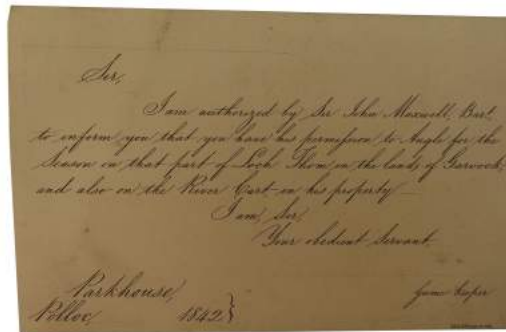 Sir,
I am authorized by Sir John Maxwell, Bart.
to inform you that you have his permission to Angle for the
Season on that part of Loch Thom on the lands of Garvock,
and also on the River Cart on his property
I am, Sir,
Your obedient Servant,
Game keeper
Parkhouse,
Polloc, 1842}